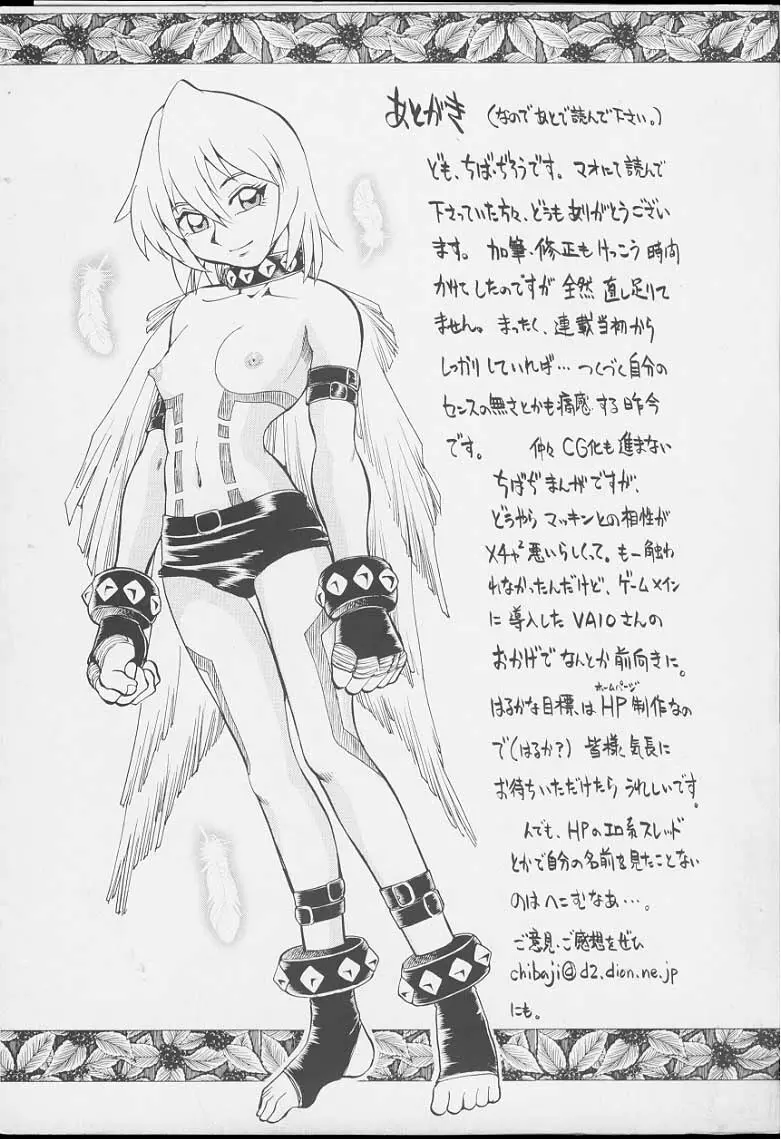 あとがき (なのであとで読んで下さい。)
ども、ちば・ぢろうです。マオにて読んで
下さっていた方々、どうもありがとうござい
ます。加筆・修正もけっこう時間
かけてしたのですが全然直し足りて
ません。まったく、連載当初から
しっかりしていれば…つくづく自分の
センスの無さとかも痛感する昨今
です。 仲々CG化も進まない
ちばぢまんがですが、
どうやらマッキンとの相性が
メチャ²悪いらしくって。も一触わ
れなかったんだけど、ゲームメイン
に導入したVAIOさんの
おかげでなんとか前向きに。
ホームページ
はるかな目標、はHP制作なの
で(はるか?)皆様、気長に
お待ちいただけたらうれしいです。
んでも、HPのエロ系スレッド
とかで自分の名前を見たことない
のはへこむなぁ…。
ご意見・ご感想をぜひ
chibaji@d2.dion.ne.jp
にも。